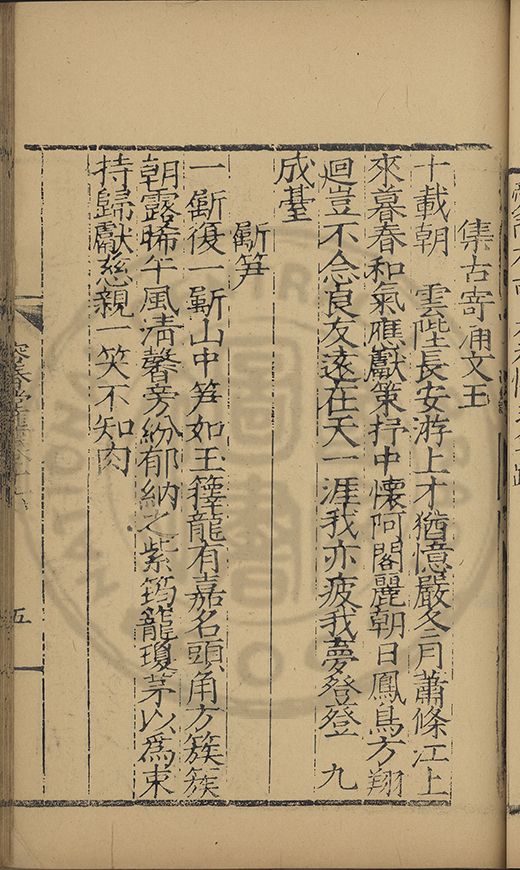 集古寄涌文王
十載朝　雲陛長安游上才猶憶嚴冬月蕭條江上
來暮春和氣應獻策抒中懷阿閣麗朝日鳳鳥方翔
迴豈不念良友遠在天一涯我亦疲我夢登登　九
成臺
斸笋
一斸復一斸山中笋如玉籜龍有嘉名頭角方簇簇
朝露晞午風清馨旁紛郁納之紫筠籠瓊茅以為束
持歸獻慈親一笑不知肉
五